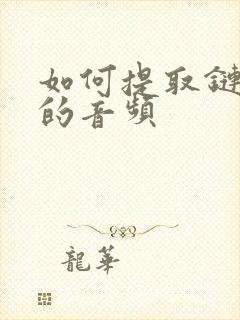 如何提取鏈
的音頻
龍華